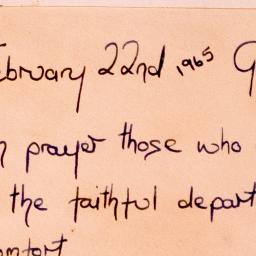 ebruary 22nd, 1965 G
n prayer those who
the faithful depart
omfort